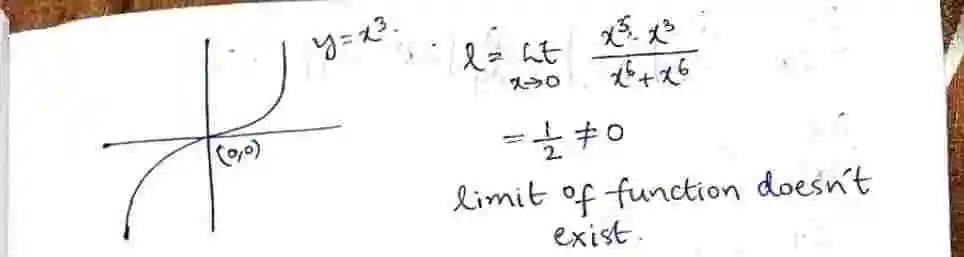 y = x³.
l = Lt x→0 x³. x³ / x⁶ + x⁶
= 1/2 ≠ 0
(0,0)
limit of function doesn't
exist.